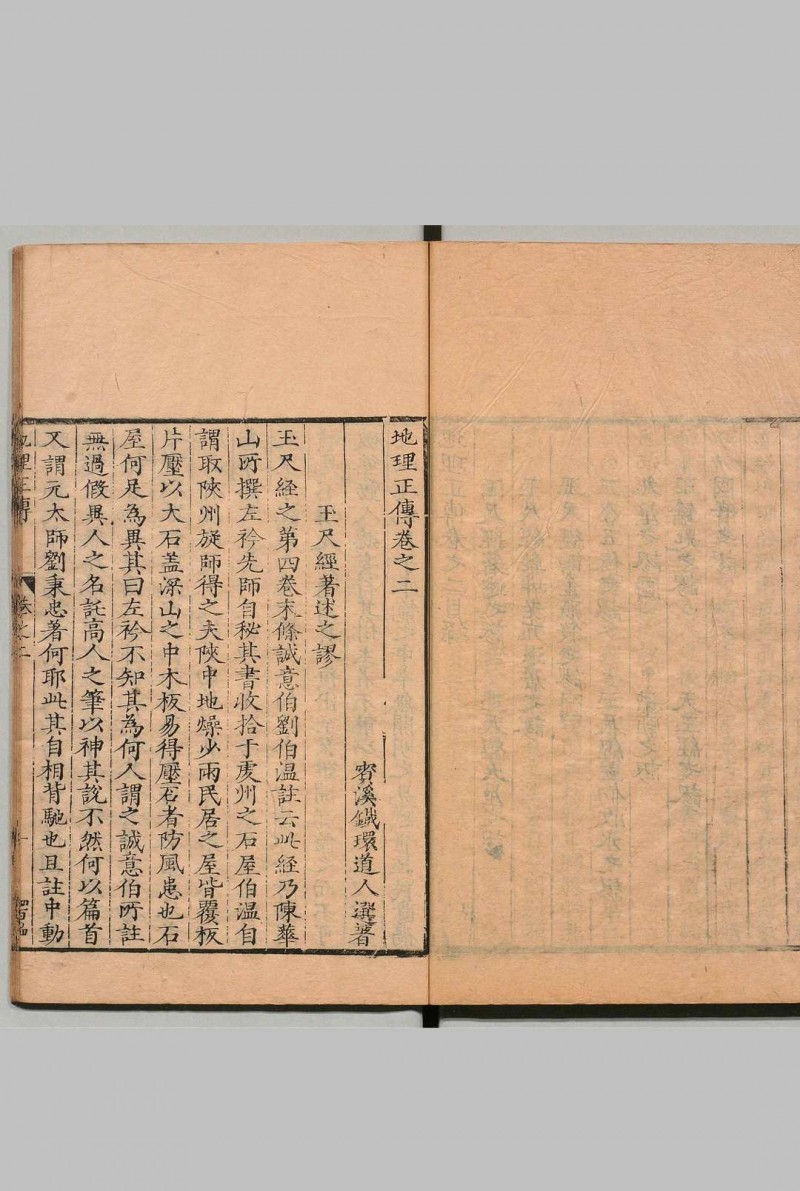 地理正傳卷之二
賓溪鐵環道人選著
玉尺經著述之謬
玉尺經之第四卷末條誠意伯劉伯溫註云此經乃陳華
山所撰左衿先師自秘其書收拾于虔州之石屋伯溫自
謂取陝州旋師得之夫陝中地燥少雨民居之屋皆覆板
片壓以大石盖深山之中木板易得壓石者防風患也石
屋何足為異其曰左衿不知其為何人謂之誠意伯所註
無過假異人之名託高人之筆以神其說不然何以篇首
又謂元太師劉秉忠著何耶此其自相背馳也且註中動
地理正傳
卷之二
一